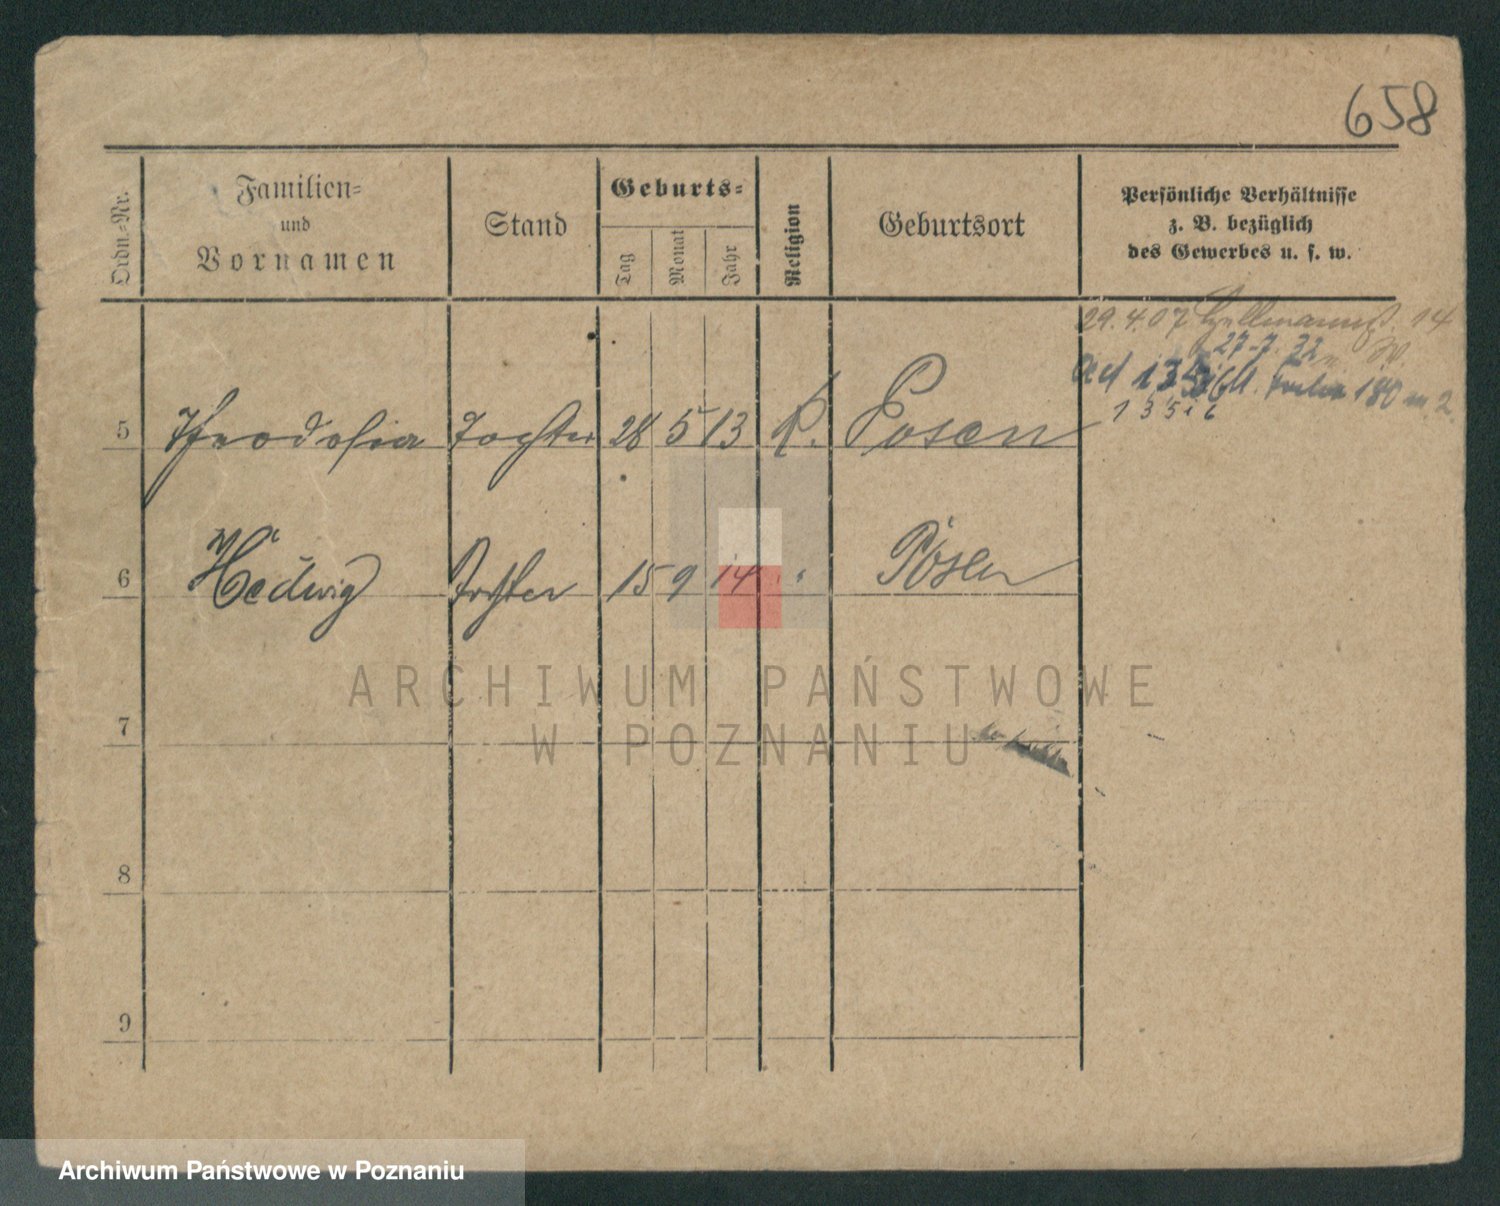 658
Ordn.-Nr.
Familien-
und
Vornamen
Stand
Geburts-
Tag
Monat
Jahr
Religion
Geburtsort
Persönliche Verhältnisse
z. B. bezüglich
des Gewerbes u. s. w.
29.4.07 14
27.7.32
13516
5 Theodosia Tochter 28 5 13 K. Posen
6 Hedwig Tochter 15 9 14 " Posen
7
8
9
ARCHIWUM PAŃSTWOWE
W POZNANIU
Archiwum Państwowe w Poznaniu